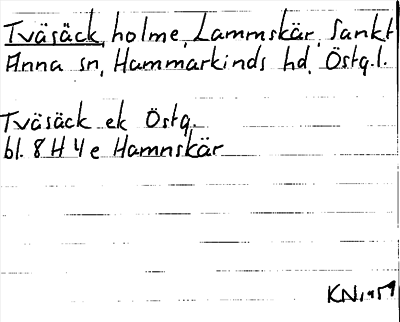 Tväsäck, holme, Lammskär, Sankt
Anna sn, Hammarkinds hd, Östg.l.
Tväsäck ek Östg.
bl. 8 H 4 e Hamnskär